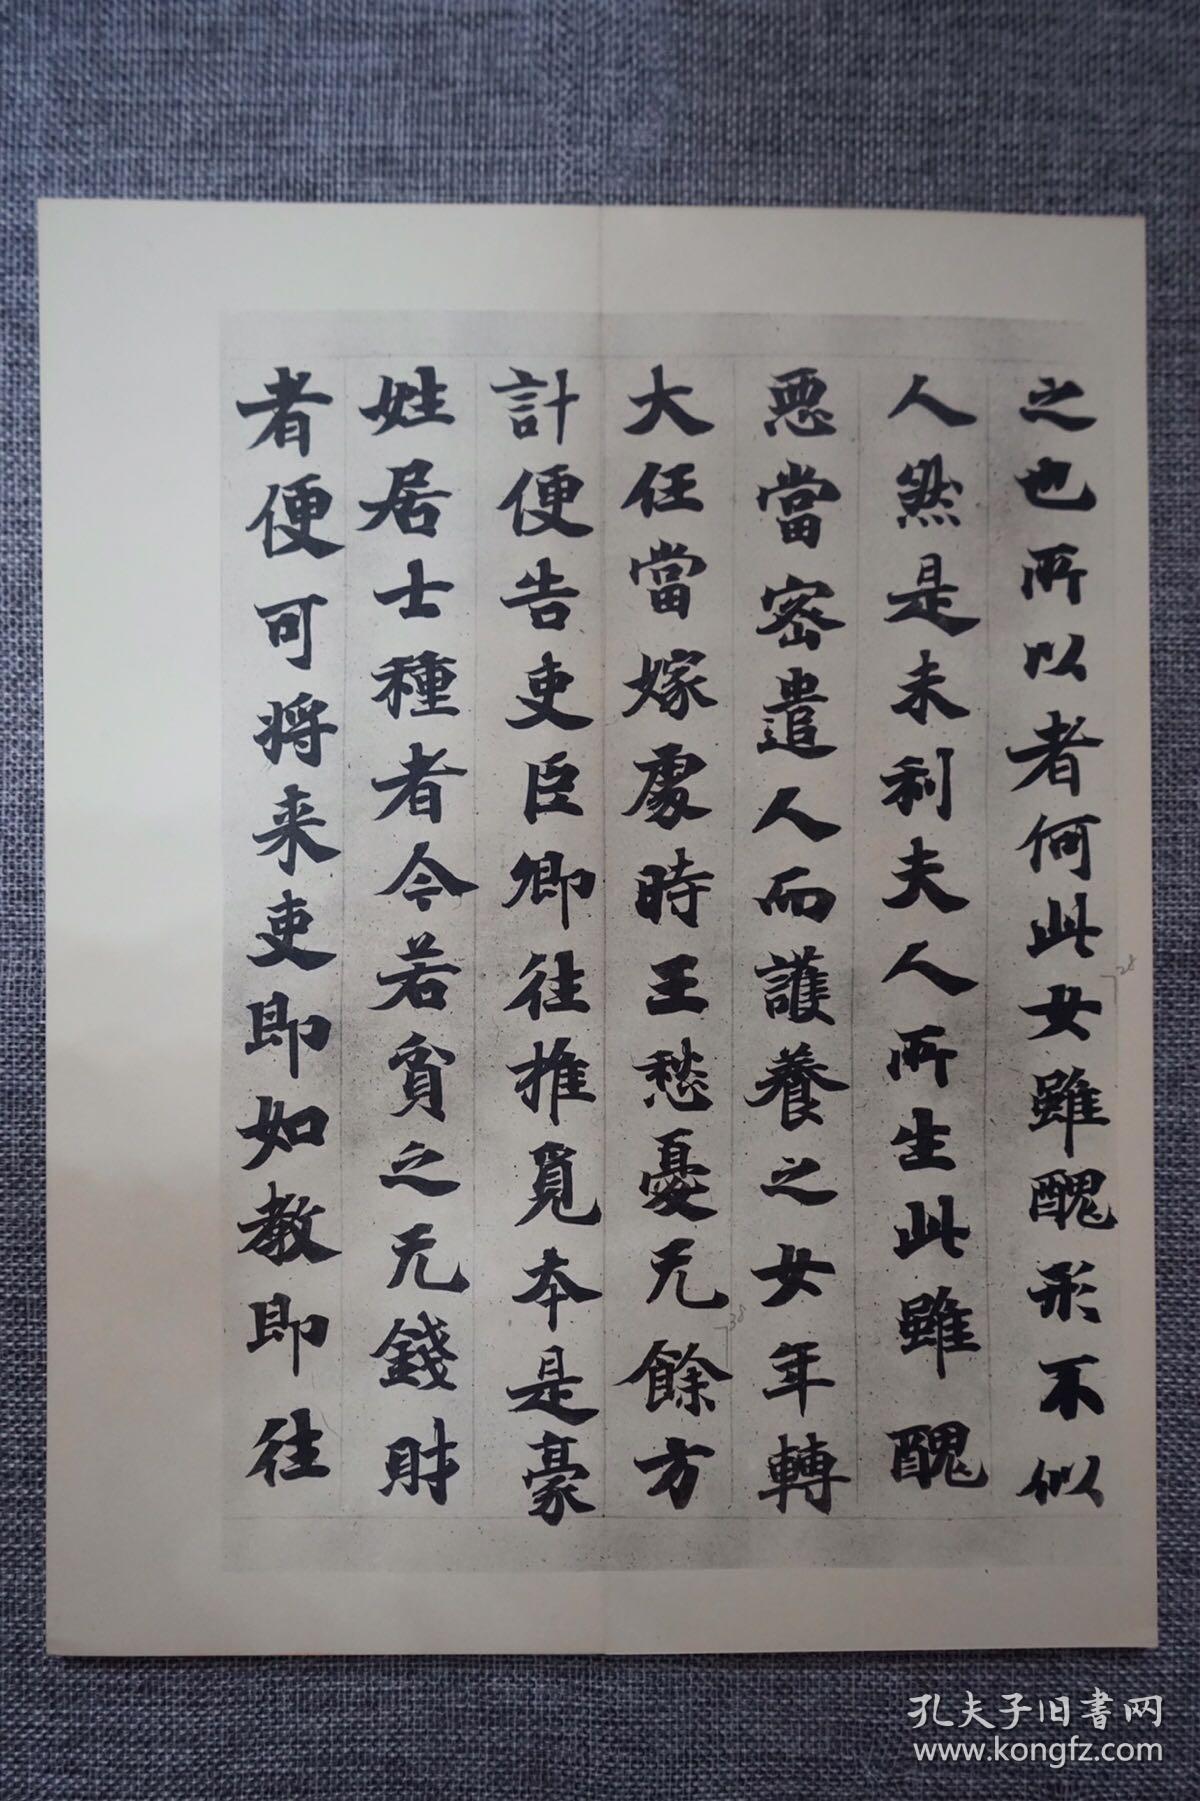 之也所以者何此女雖醜形不似
人然是末利夫人所生此雖醜
惡當密遣人而護養之女年轉
大任當嫁處時王愁憂无餘方
計便告吏臣卿往推覓本是豪
姓居士種者今若貧之无錢財
者便可將来吏即如教即往
28
38
孔夫子旧书网
www.kongfz.com